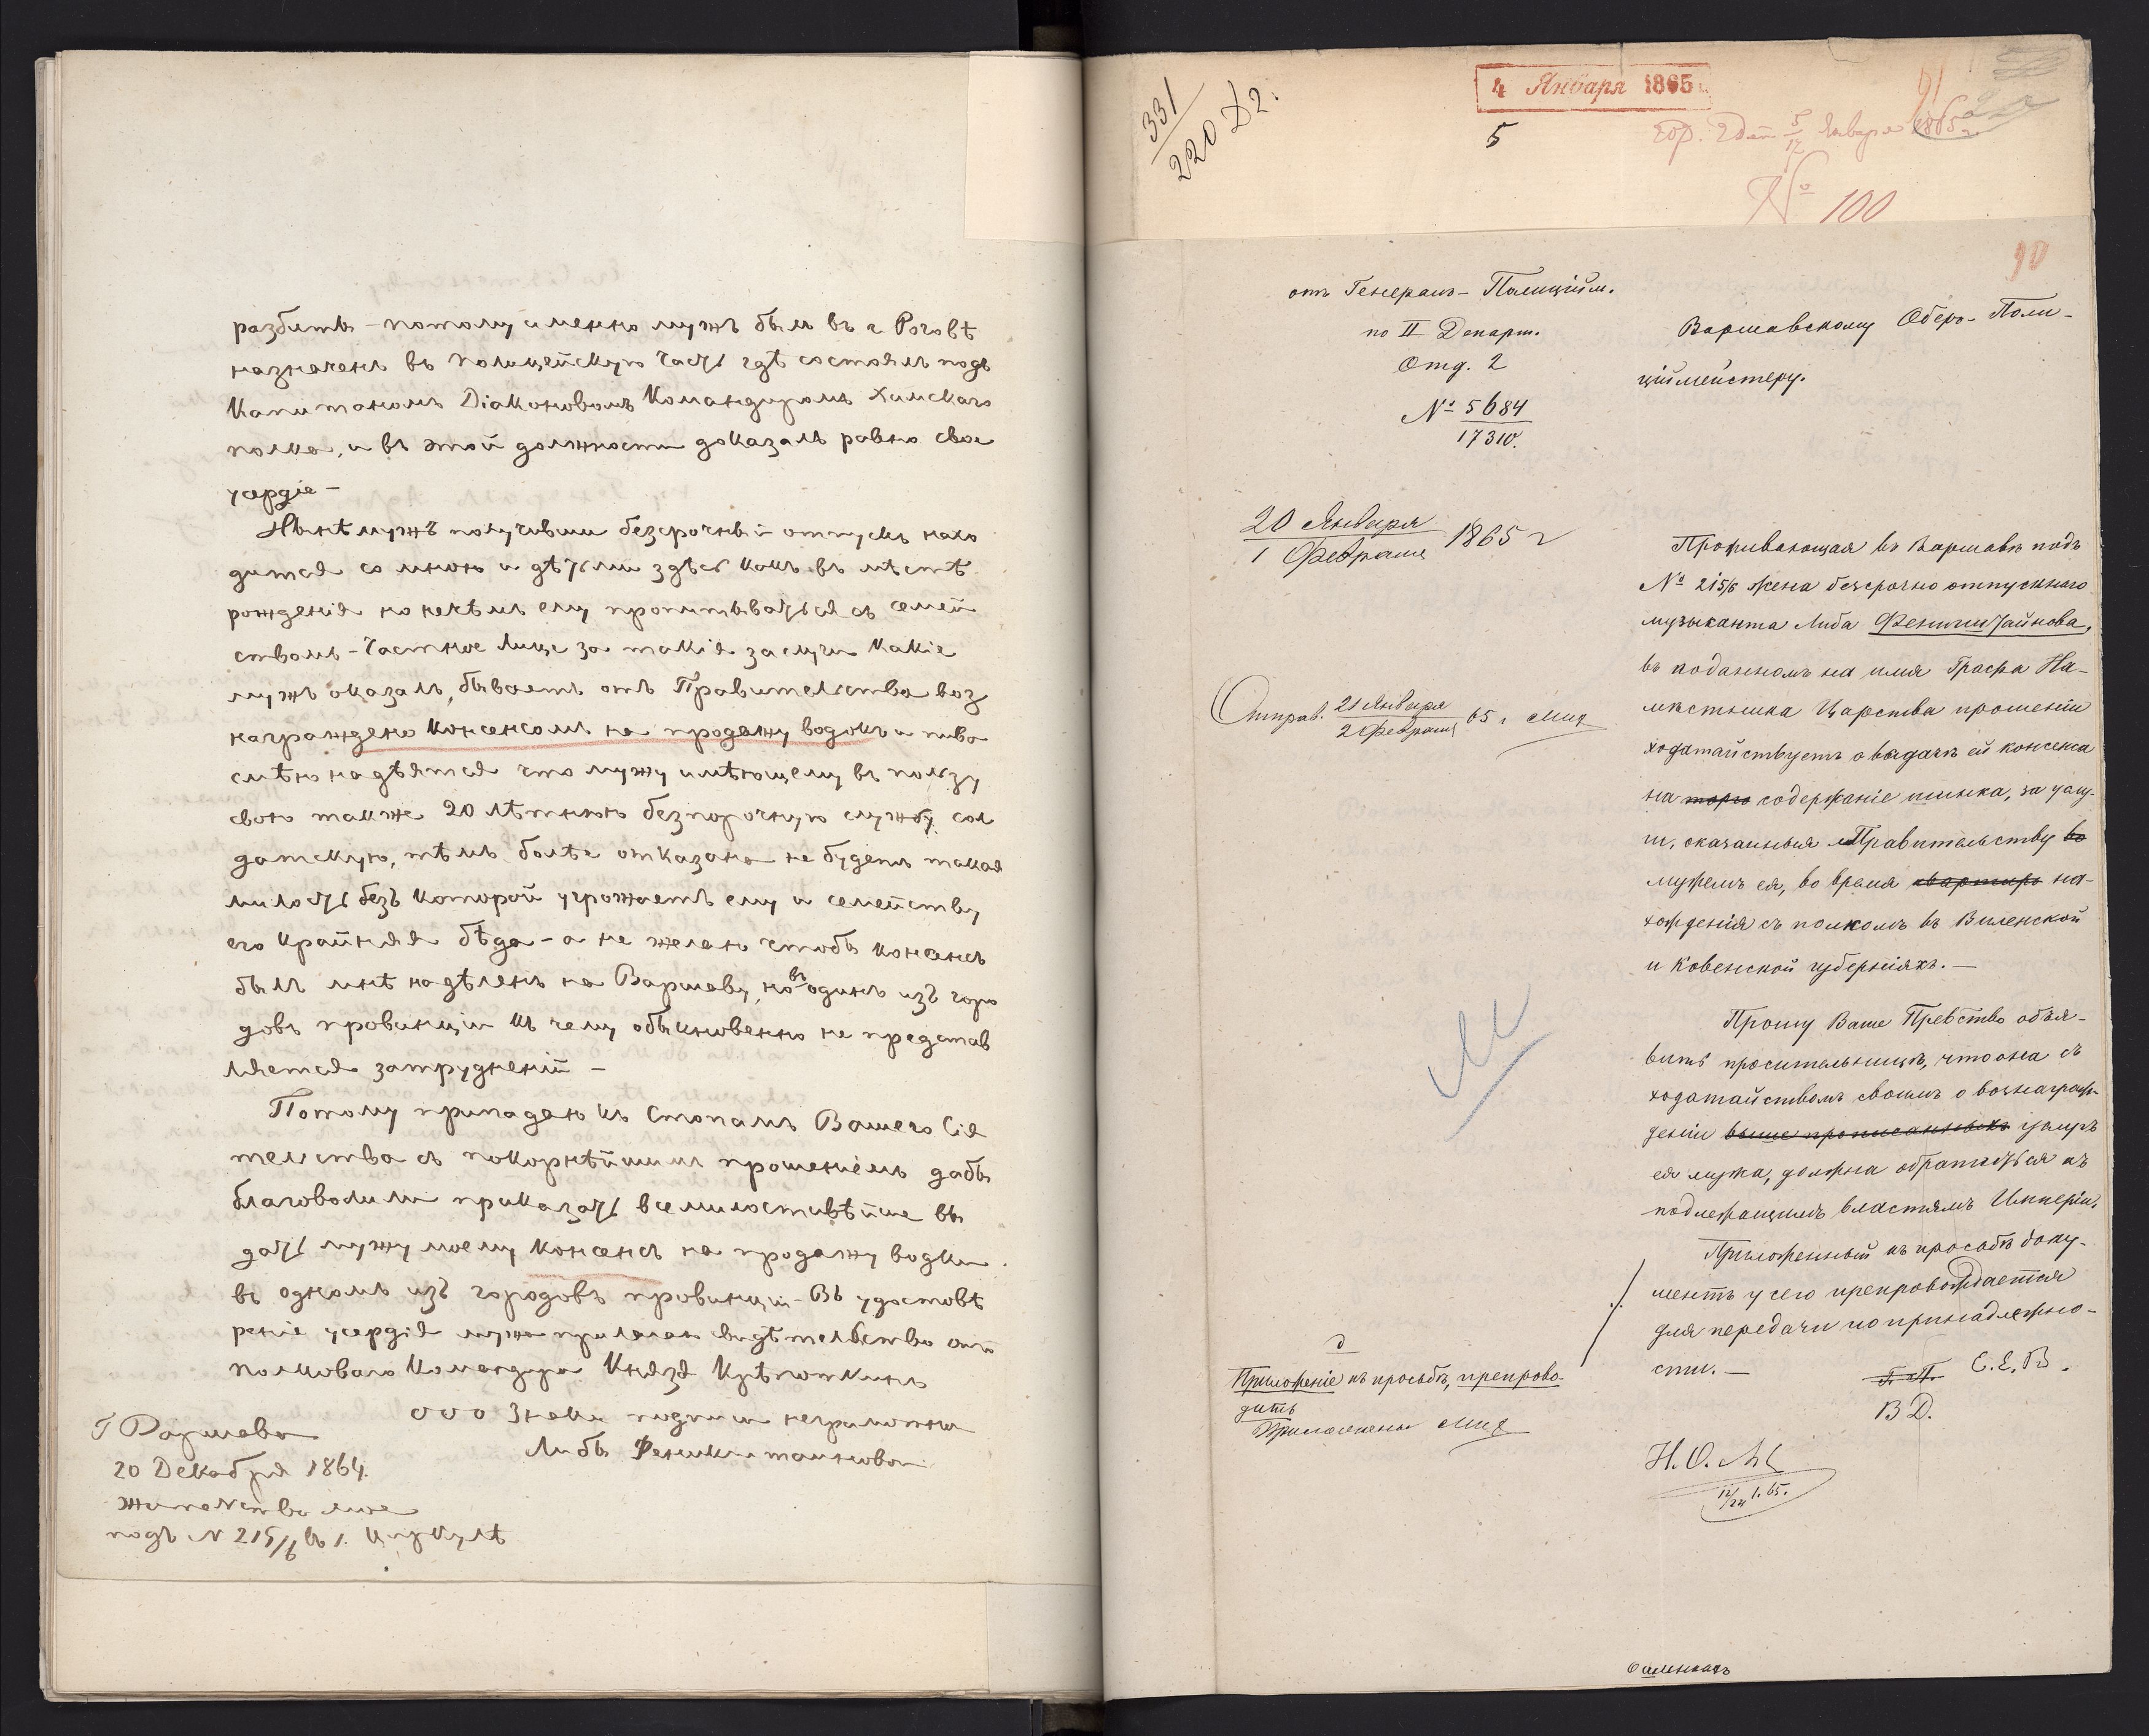 разбиты - потому именно мужъ былъ въ г Роговѣ
назначенъ въ полицейскую часть гдѣ состоялъ подъ
Капитаномъ Діаконовомъ Командиромъ Хамскаго
полка, и въ этой должности доказалъ равно свое
усердіе -
Нынѣ мужъ получивши безсрочный отпускъ нахо
дится со мною и дѣтьми здѣсь какъ въ мѣстѣ
рожденія но нечѣмъ ему пропитываться съ семей
ствомъ - Частное лице за такія заслуги какіе
мужъ оказалъ, бываетъ отъ Правительства воз
награждено консенсомъ на продажу водокъ и пива
смѣю надѣятся что мужу имѣющему въ пользу
свою также 20 лѣтнюю безпорочную службу сол
датскую, тѣмъ болѣе отказана не будетъ такая
милость безъ которой угрожаетъ ему и семейству
его крайняя бѣда - а не желаю чтобъ консенсъ
былъ мнѣ надѣленъ на Варшаву, но въ одинъ изъ горо
довъ провинціи къ чему обыкновенно не представ
ляется затрудненій -
Потому припадею къ стопамъ Вашего Сія
тельства съ покорнѣйшимъ прошеніемъ дабы
благоволили приказать всемилостивѣйше вы
дать мужу моему консенсъ на продажу водки
въ одномъ изъ городовъ провинціи - Въ удостовѣ
реніе усердія мужа прилагаю свидѣтельство отъ
полковаго Командира Князя Крѣпоткинъ
ооо Знаки подписи неграмотна
Либы Фенимштаинновой
Г Варшава
20 Декабря 1864.
жительство мое
подъ N 215/6 въ 1. Циркулѣ
331
220 Д2.
4 Января 1865
5
91
5
17 Января 1865
№ 100
90
отъ Генералъ-Полиційм.
по II Департ.
Отд. 2
№ 5684
17310.
Варшавскому Оберъ-Поли-
ціймейстеру.
20 Января
1 Февраля 1865 г
Отправ. 21 Января
2 Февраля 65 г
Проживающая въ Варшавѣ подъ
№ 215/6 жена безсрочно отпускнаго
музыканта Либа Фенимштайнова,
въ поданномъ на имя Графа На-
мѣстника Царства прошеніи
ходатайствуетъ о выдачѣ ей консенса
на торгъ содержаніе шинка, за услу-
ги, оказанныя Правительству во
мужемъ ея, во время квартиръ на-
хожденія съ полкомъ въ Виленской
и Ковенской губерніяхъ. —
Прошу Ваше Прев̃ство объя-
вить просительницѣ, что она съ
ходатайствомъ своимъ о вознаграж-
деніи выше прописанныхъ услугъ
ея мужа, должна обратиться къ
подлежащимъ властямъ Имперіи.
Приложенный къ просьбѣ доку-
ментъ у сего препровождается
для передачи по принадлежно-
сти. —
Г. П. С. Е. В.
В Д.
Приложеніе къ просьбѣ, препрово-
дить
Н. О.
12/24 1. 65.